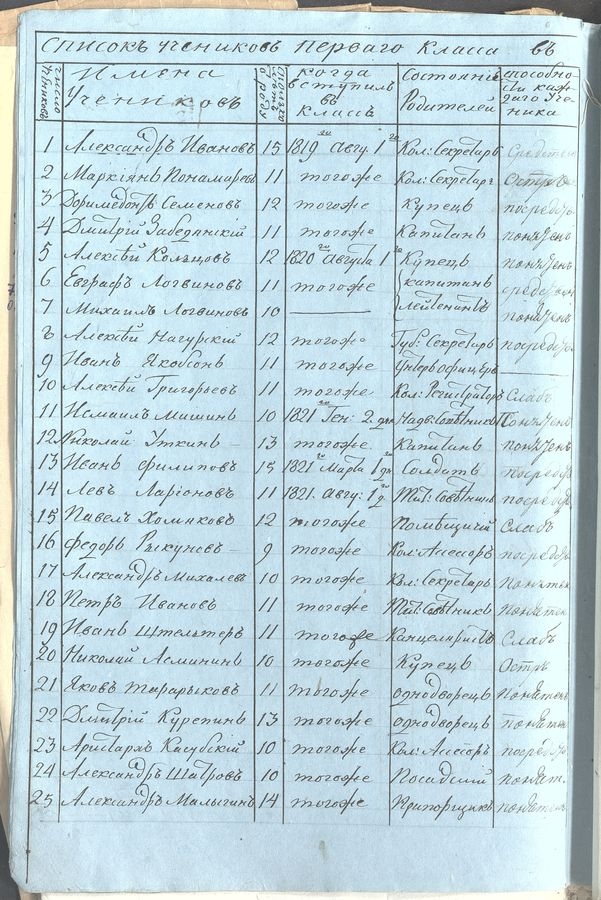 Списокъ учениковъ перваго класса въ
число учениковъ Имена Учениковъ сколько отъ роду когда вступилъ въ классъ Состояніе Родителей способности каждаго ученика
1 Александръ Ивановъ 15 1819 го Авгу. 1 го Кол: Секретаръ
2 Маркіянъ Понамаревъ 11 тогоже Кол: Секретаръ
3 Доримедонтъ Семеновъ 12 тогоже Купецъ посред
4 Дмитрій 11 тогоже Капитанъ понятенъ
5 Алексѣй Кольцовъ 12 1820 го Августа 1 го Купецъ понятенъ
6 Евграфъ Логвиновъ 11 тогоже капитанъ
7 Михаилъ Логвиновъ 10 лейтенантъ понятенъ
8 Алексѣй Нагурскій 12 тогоже Губ: Секретаръ посред
9 Иванъ Якобсонъ 11 тогоже Унтеръ офицеръ
10 Алексѣй Григорьевъ 11 тогоже Кол: Регистраторъ Слабъ
11 Исмаилъ Мишинъ 10 1821 го Ген: 2. дня Надв: Совѣтникъ Понятенъ
12 Николай Уткинъ 13 тогоже Капитанъ понятенъ
13 Иванъ Филиповъ 15 1821 го Марта 1 дня Солдатъ посред
14 Левъ Ларіоновъ 11 1821. Авгу: 1 д. Тит: Совѣтникъ посред
15 Павелъ Хомяковъ 12 тогоже Помѣщичій слабъ
16 Федоръ Рыкуновъ 9 тогоже Кол: Ассесоръ посред
17 Александръ Михалевъ 10 тогоже Кол: Секретаръ Понятен
18 Петръ Ивановъ 11 тогоже Тит: Совѣтникъ Понятен
19 Иванъ Штельтеръ 11 тогоже Канцеляристъ Слабъ
20 Николай Асминтъ 10 тогоже Купецъ Остръ
21 Яковъ Тарарыковъ 11 тогоже однодворецъ Понятен
22 Дмитрій Курепинъ 13 тогоже однодворецъ Понятен
23 Аристархъ Касубскій 10 тогоже Кол: Ассесоръ посред
24 Александръ Шатровъ 10 тогоже Посадскій понят.
25 Александръ Малыгинъ 14 тогоже Прапорщикъ понятен